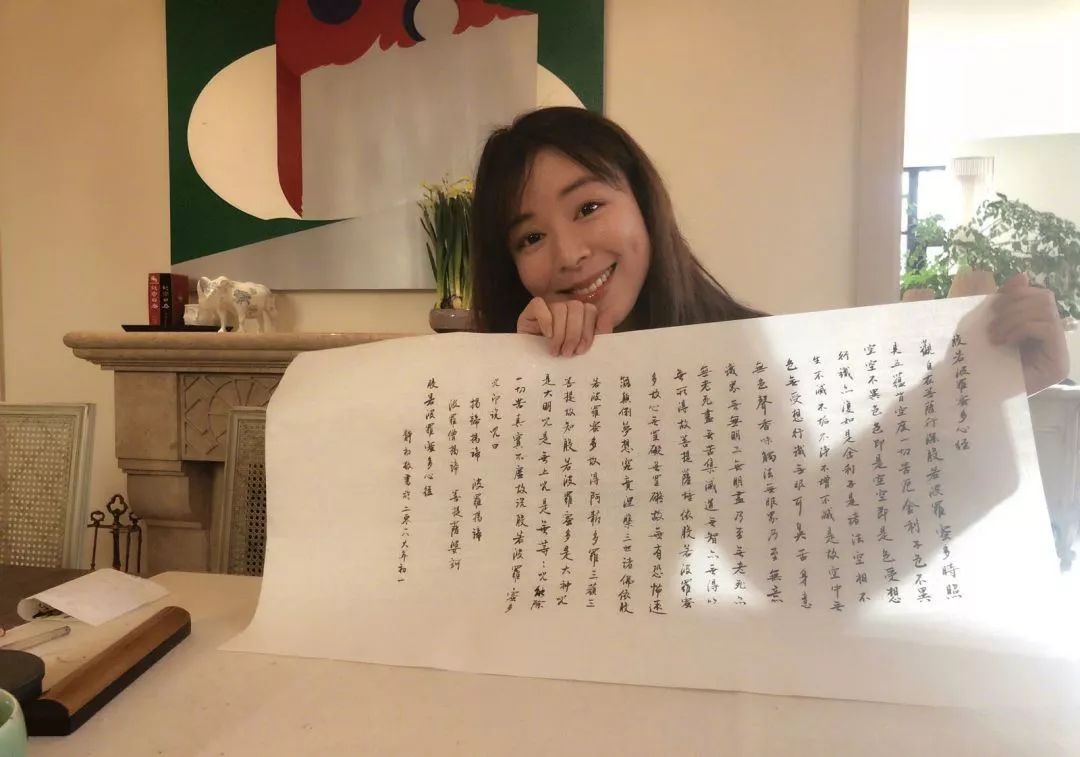 般若波羅蜜多心經
觀自在菩薩行深般若波羅蜜多時照
見五蘊皆空度一切苦厄舍利子色不異
空空不異色色即是空空即是色受想
行識亦復如是舍利子是諸法空相不
生不滅不垢不淨不增不減是故空中無
色無受想行識無眼耳鼻舌身意
無色聲香味觸法無眼界乃至無意
識界無無明亦無明盡乃至無老死亦
無老死盡無苦集滅道無智亦無得以
無所得故菩提薩埵依般若波羅蜜
多故心無罣礙無罣礙故無有恐怖遠
離顛倒夢想究竟涅槃三世諸佛依般
若波羅蜜多故得阿耨多羅三藐三
菩提故知般若波羅蜜多是大神咒
是大明咒是無上咒是無等:咒能除
一切苦真實不虛故說般若波羅蜜多
咒即說咒曰
揭諦揭諦 波羅揭諦
波羅僧揭諦 菩提薩婆訶
般若波羅蜜多心經
靜初敬書於二零一八大年初一